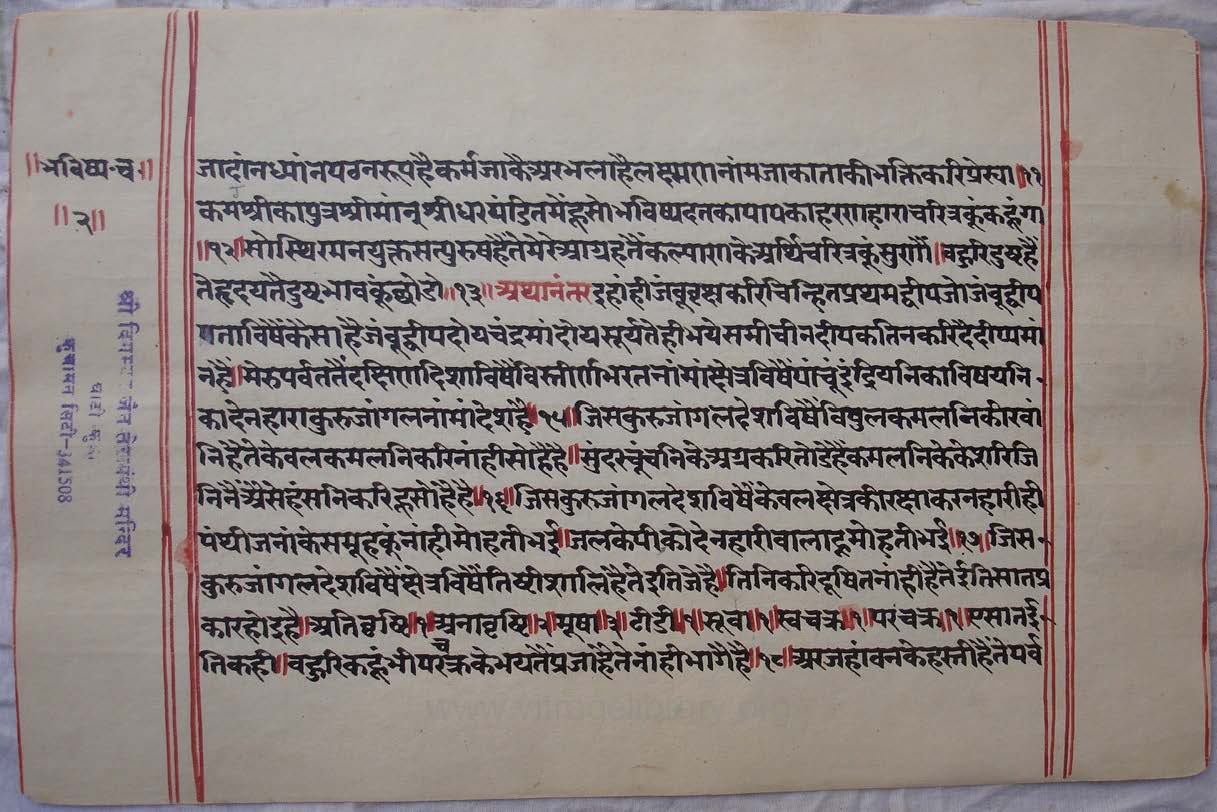 ॥भविष्य-च॥
॥२॥
जादांनध्यांनपठनरूपहैकर्मजाकैअरभलाहैलक्ष्मणनांमजाकाताकीभक्तिकरिप्रेस्या॥११
कमश्रीकापुत्रश्रीमांन्श्रीधरपंडितमैंहूसोभविष्यदतकापापकाहरणहाराचरित्रकूंकहूंगा
॥१२॥सोस्थिरमनयुक्तसत्पुरुषहैंतेमेरेआग्रहतैंकल्याणकेअर्थिचरित्रकूंसुणौं॥बहुरिदुष्टहैं
तेहृदयतैदुष्टभावकूंछोडो॥१३॥अथानंतरइहांहीजंबूवृक्षकरिचिन्हितप्रथमद्वीपजोजंबूद्वीप
पताविषैंकैसाहैजंबूद्वीपदोयचंद्रमांदोयसूर्यतेहीभयेसमीचीनदीपकतिनकरिदैदीप्यमां
नहै॥मेरुपर्वततैंदक्षिणदिशाविषैविस्तीर्णभरतनांमांक्षेत्रविषैंपांचूंइंद्रियनिकाविषयनि
कादेनहाराकुरुजांगलनांमांदेशहै॥१५॥जिसकुरुजांगलदेशविषैविपुलकमलनिकीखां
निहैंतेकेवलकमलनिकरिनांहीसोहैहै॥सुंदरचूंचनिकेअग्रकरितोडेहैंकमलनिकेकेशरिजि
निनैंअैसेहंसनिकरिहूसोहैहै॥१६॥जिसकुरुजांगलदेशविषैंकेवलक्षेत्रकीरक्षाकरनहारीही
पंथीजनांकेसमूहकूंनांहीमोहतीभई॥जलकेपीकोदेनहारीवालाहूमोहतीभई॥१७॥जिस
कुरुजांगलदेशविषैंक्षेत्रविषैंतिष्टीशालिहैतेइतिजेहै॥तिनिकरिदूषितनांहीहैतेईतिसातप्र
कारहोइहै॥अतिवृष्टि॥१॥अनावृष्टि॥२॥मूषा॥३॥टीडी॥४॥सूवा॥५॥स्वचक्र॥६॥परचक्र॥७॥एसातई
तिकही॥बहुरिकहूंभीपरचक्रकेभयतैंप्रजाहैतेनांहीभागैहै॥१८॥अरजहांवनकेहस्तीहैंतेपर्व
श्री दिगम्बर जैन तेरापंथी मन्दिर
कुचामन सिटी-341508